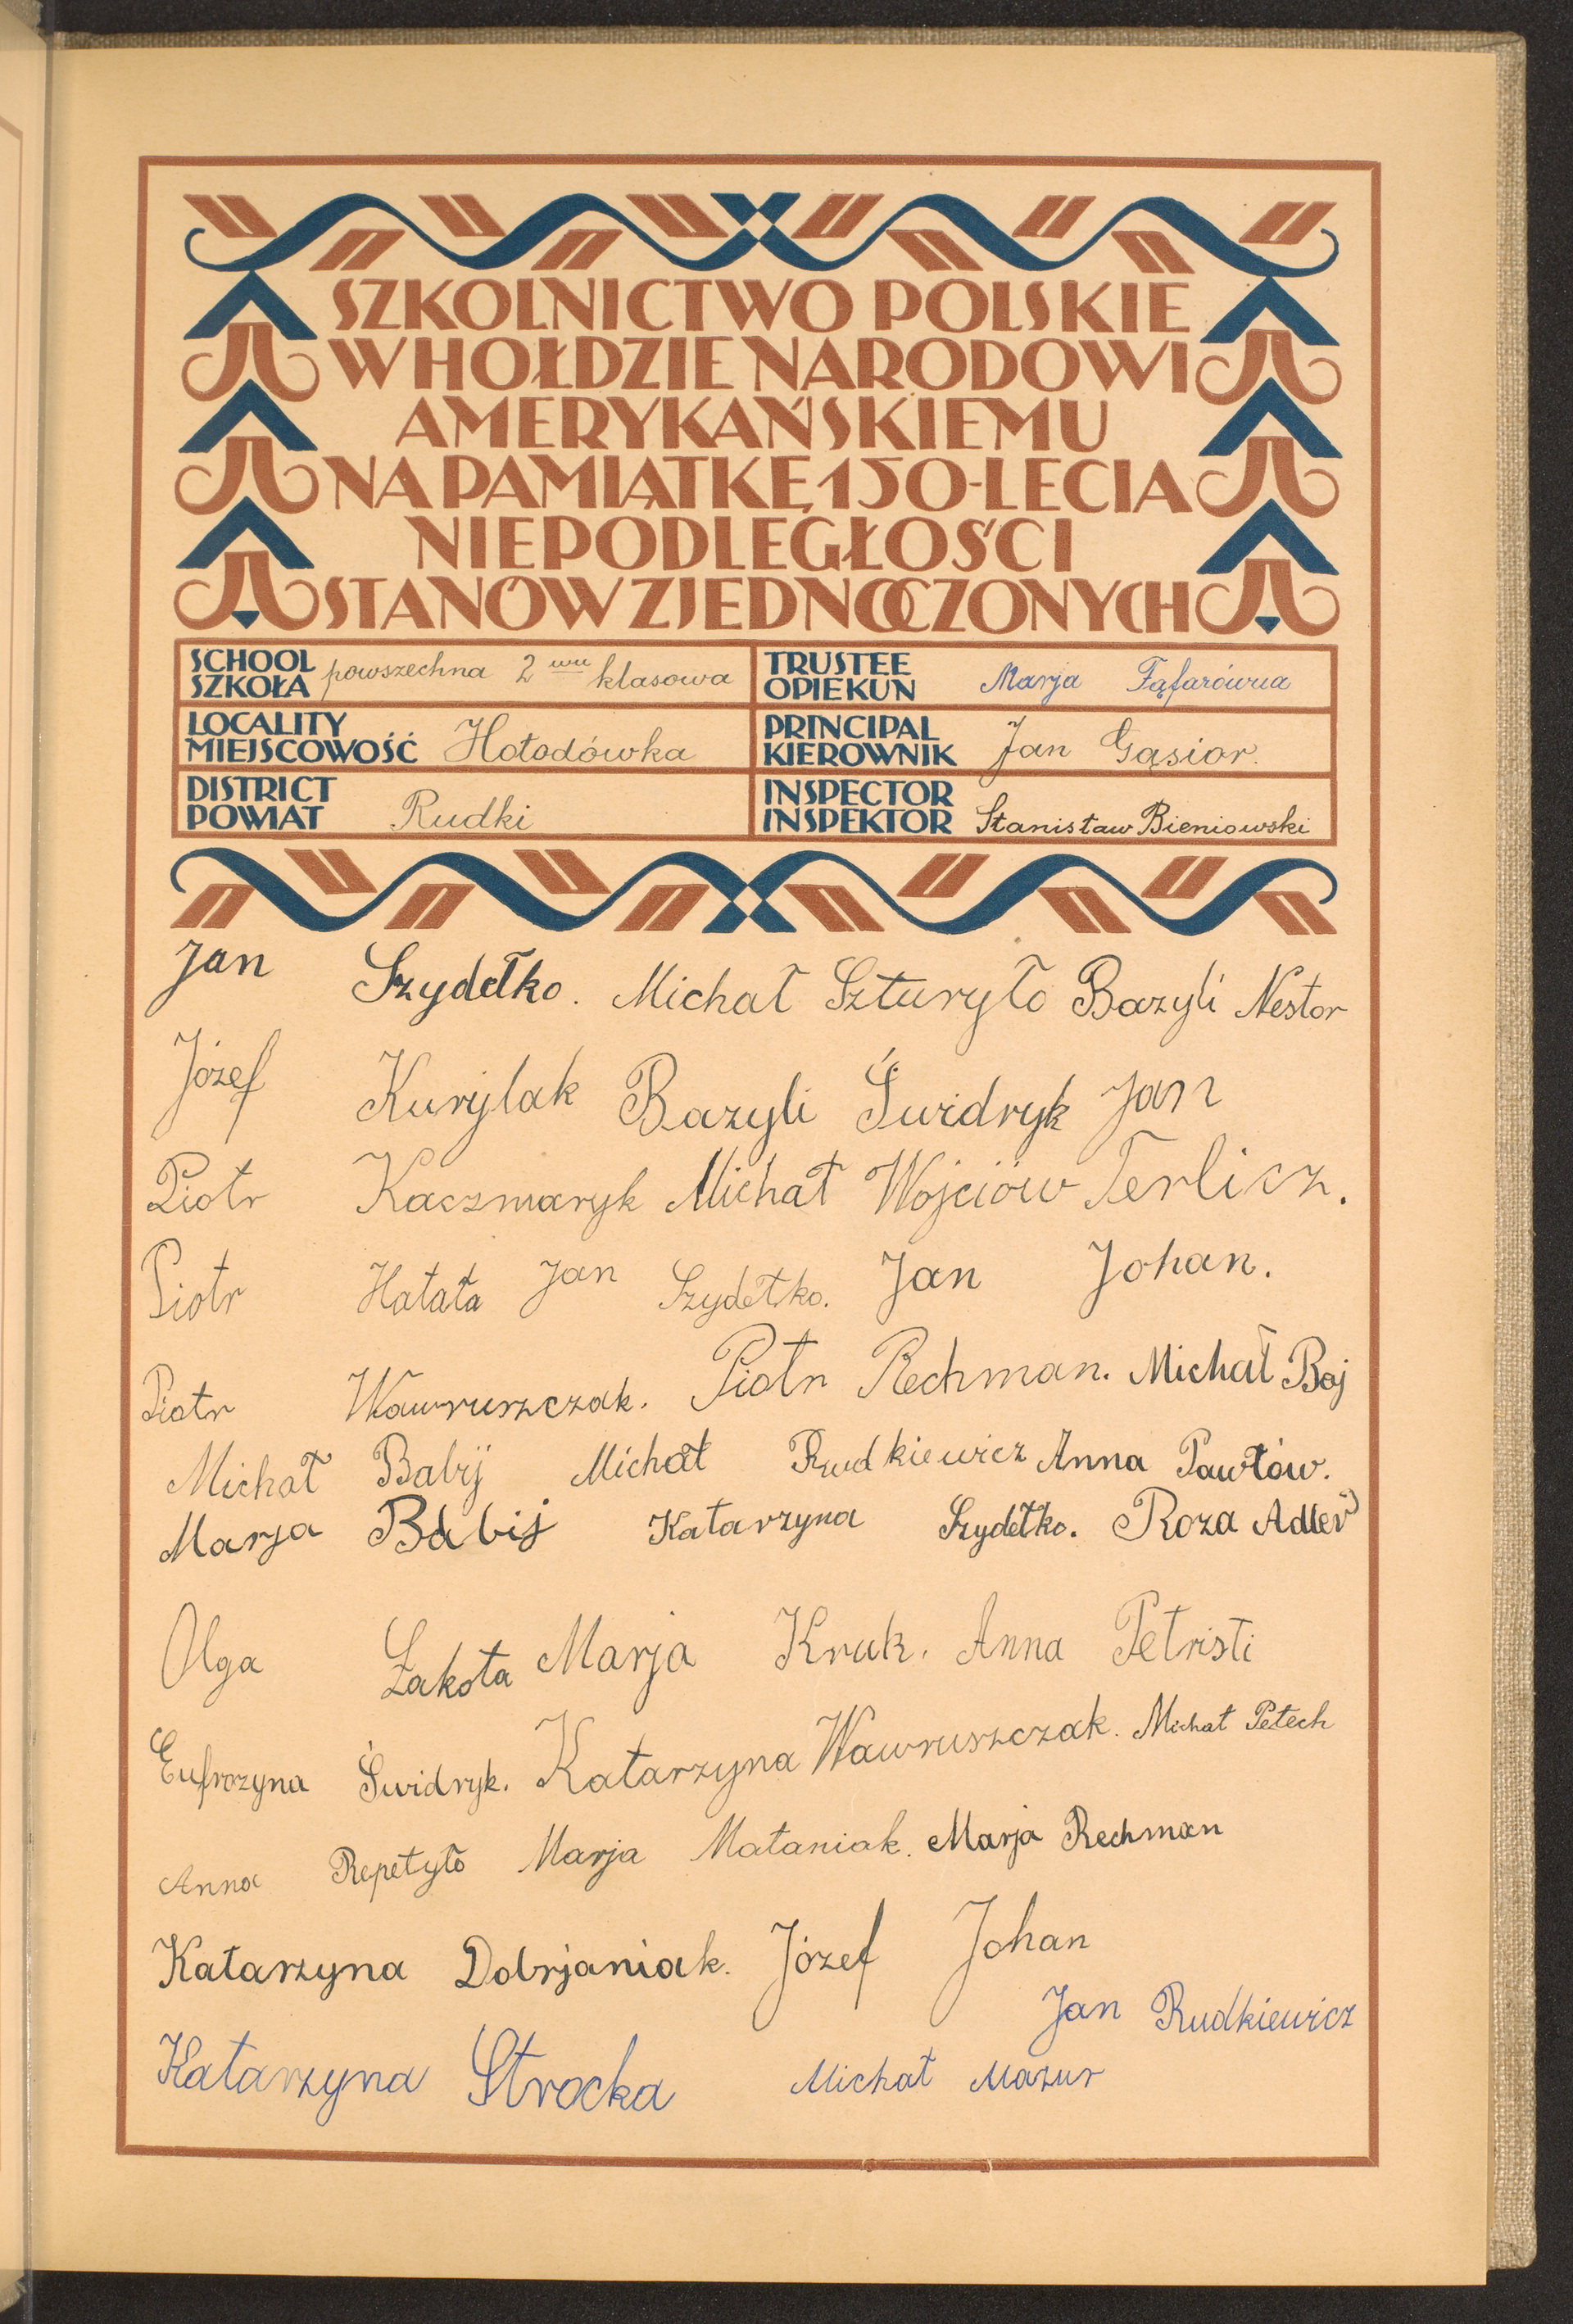 SZKOLNICTWO POLSKIE
W HOŁDZIE NARODOWI
AMERYKAŃSKIEMU
NA PAMIĄTKĘ 150-LECIA
NIEPODLEGŁOŚCI
STANÓW ZJEDNOCZONYCH
SCHOOL
SZKOŁA powszechna 2 wu klasowa
TRUSTEE
OPIEKUN Marja Fąfarówna
LOCALITY
MIEJSCOWOŚĆ Hołodówka
PRINCIPAL
KIEROWNIK Jan Gąsior.
DISTRICT
POWIAT Rudki
INSPECTOR
INSPEKTOR Stanisław Bieniowski
Jan Szydełko. Michał Szturyło Bazyli Nestor
Józef Kurylak Bazyli Świdryk Jan
Piotr Kaczmaryk Michał Wojciów Terlicz.
Piotr Hałata Jan Szydełko. Jan Johan.
Piotr Wawruszczak. Piotr Rechman. Michał Baj
Michał Babij Michał Rudkiewicz Anna Pawłów.
Marja Babij Katarzyna Szydełko. Roza Adler
Olga Zakota Marja Kruk. Anna Petristi
Eufrozyna Świdryk. Katarzyna Wawruszczak. Michał Petech
Anna Repetyło Marja Mataniak. Marja Rechman
Katarzyna Dobrjaniak. Józef Johan
Jan Rudkiewicz
Katarzyna Strocka Michał Mazur